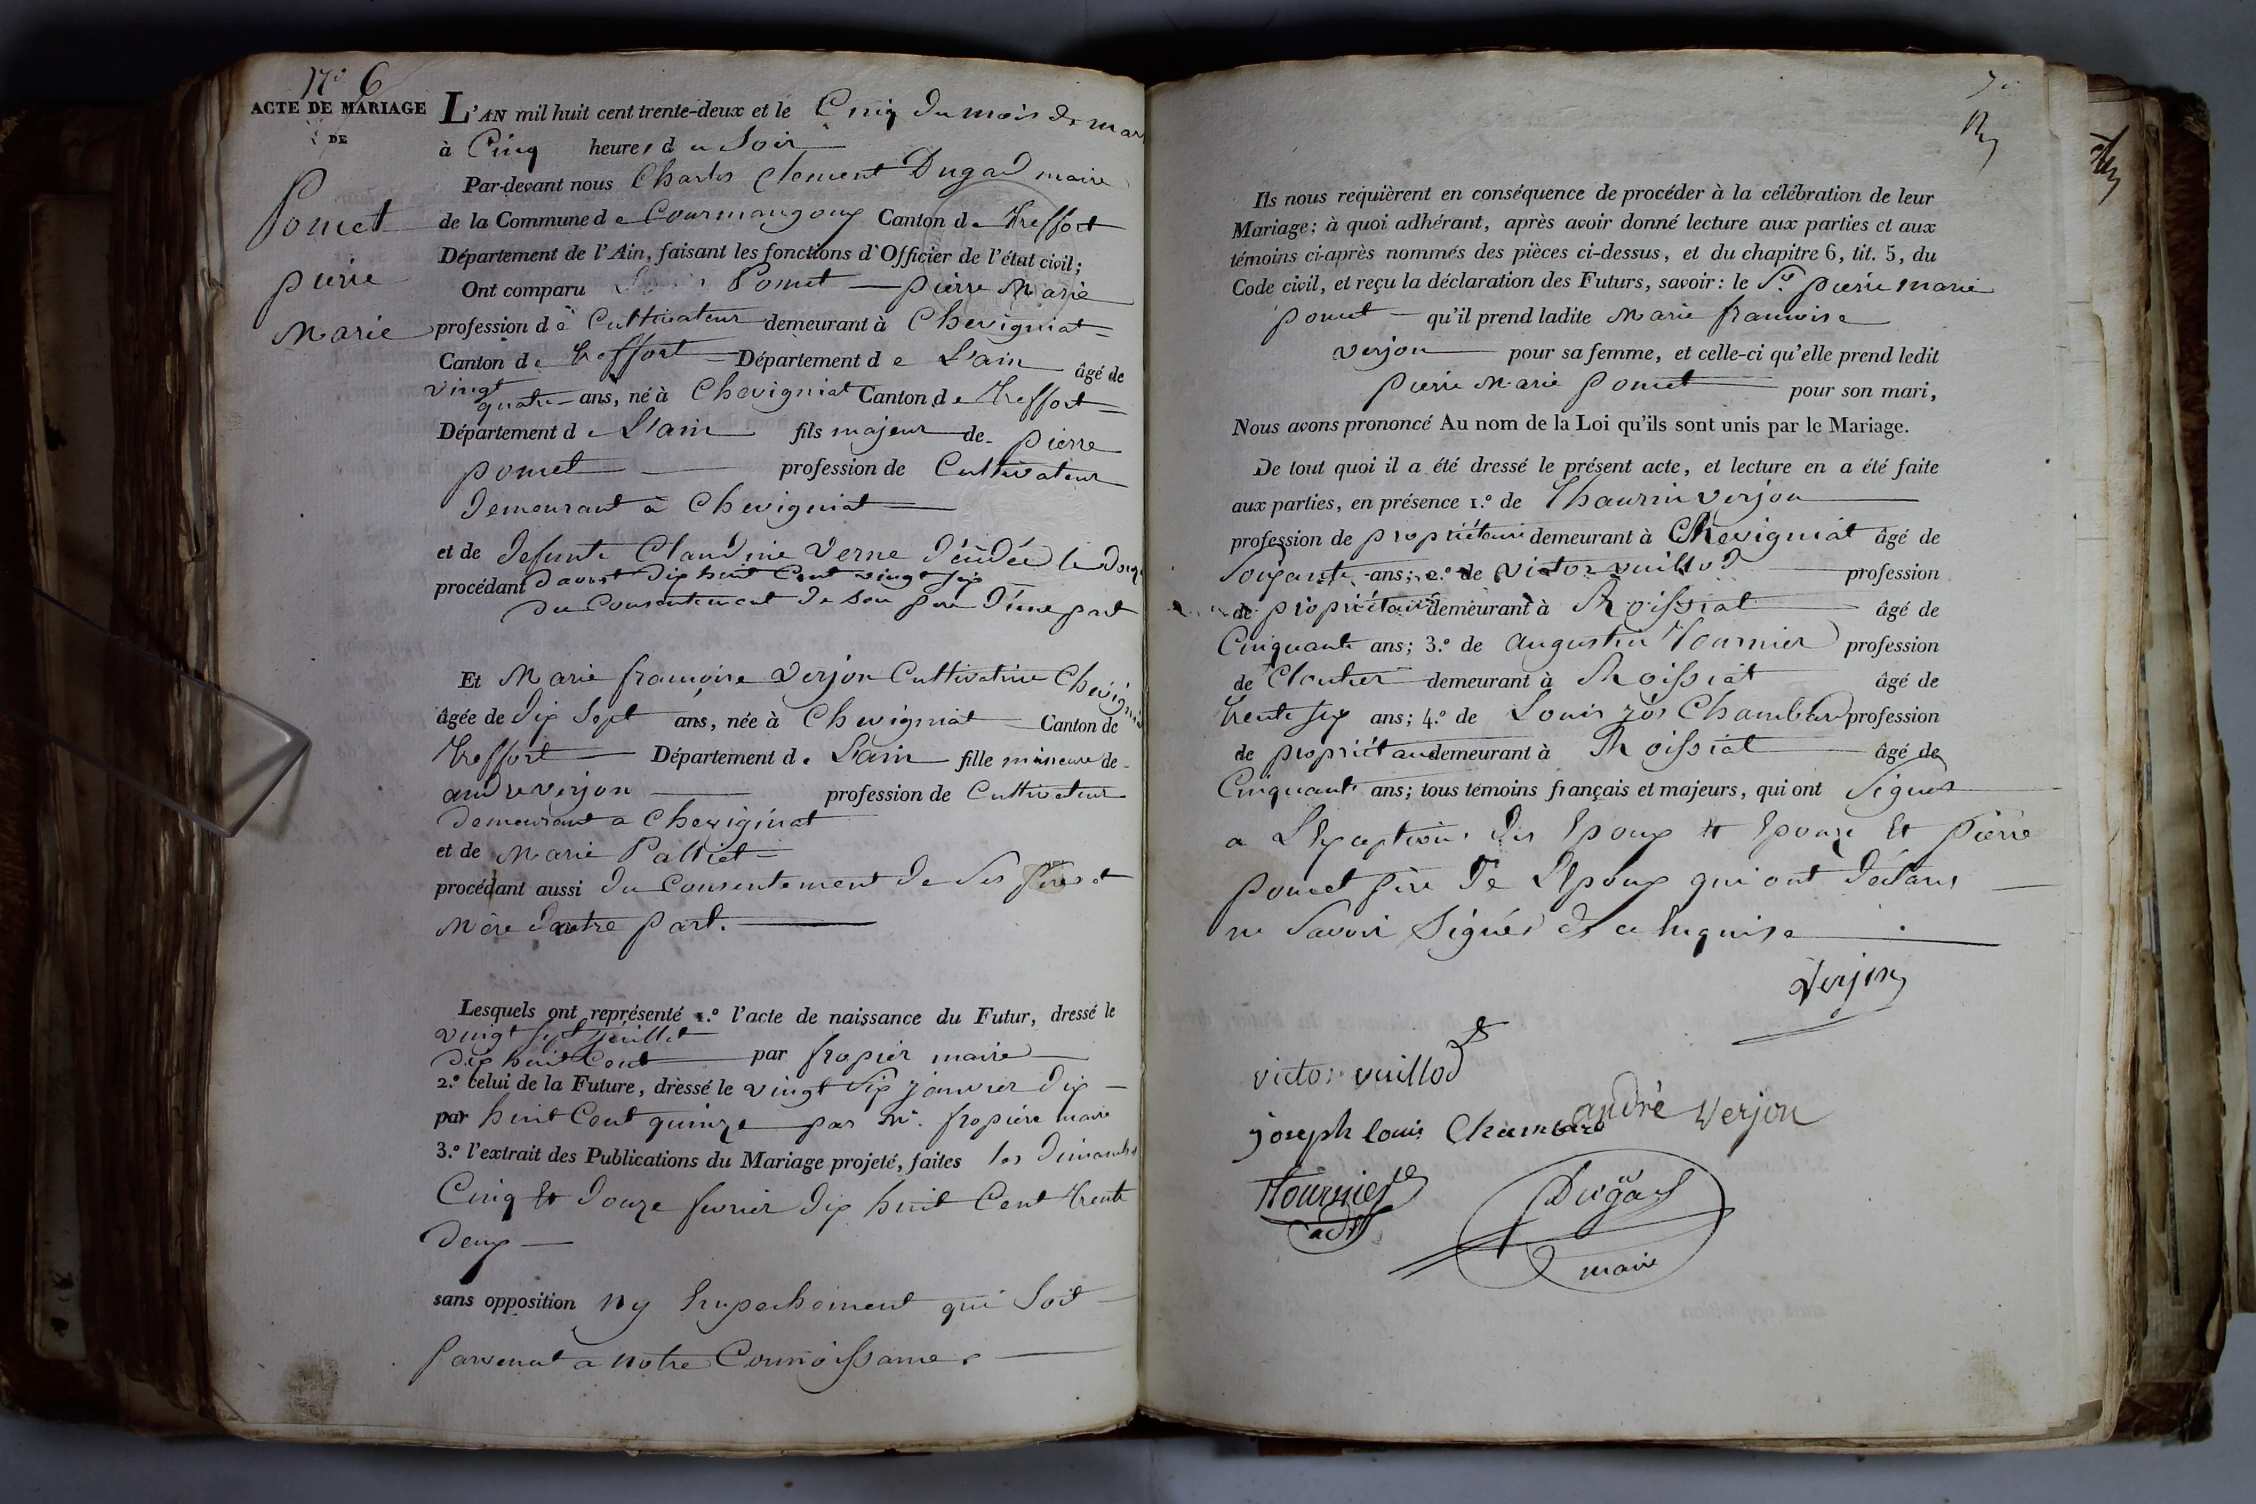 N° 6
ACTE DE MARIAGE
DE
Pomet
pierre
Marie
L'AN mil huit cent trente-deux et le Cinq du mois de mars
à Cinq heures du Soir
Par-devant nous Charles Clement Dugad maire
de la Commune de Courmangoux Canton de Treffort
Département de l'Ain, faisant les fonctions d'Officier de l'état civil;
Ont comparu Pomet pierre Marie
profession de Cultivateur demeurant à Chevigniat
Canton de treffort Département de L'ain âgé de
vingt
quatre ans, né à Chevigniat Canton de Treffort
Département de L'ain fils majeur de pierre
pomet profession de Cultivateur
demeurant à Chevigniat
et de defunte Claudine Verne décédée le douze
procédant d'avost dix huit Cent vingt six
du Consentement de son père d'une part
Et Marie francoise Verjon Cultivatrice Chevigniat
âgée de dix Sept ans, née à Chevigniat Canton de
treffort Département de L'ain fille mineure de
andre verjon profession de Cultivateur
demeurant a Chevigniat
et de Marie Palliet
procédant aussi du Consentement de Ses père et
Mère d'autre part.
Lesquels ont représenté 1.° l'acte de naissance du Futur, dressé le
vingt Sept juillet
dix huit Cent par fropier maire
2.° celui de la Future, dressé le vingt Six janvier dix
par huit Cent quinze par mr. fropier maire
3.° l'extrait des Publications du Mariage projeté, faites les dimanches
Cinq Et douze fevrier dix huit Cent trente
deux
sans opposition ny Empechement qui Soit
parvenut a notre Connoissance.
Ils nous requièrent en conséquence de procéder à la célébration de leur
Mariage; à quoi adhérant, après avoir donné lecture aux parties et aux
témoins ci-après nommés des pièces ci-dessus, et du chapitre 6, tit. 5, du
Code civil, et reçu la déclaration des Futurs, savoir: le Sr. pierre marie
pomet qu'il prend ladite Marie francoise
verjon pour sa femme, et celle-ci qu'elle prend ledit
pierre Marie pomet pour son mari,
Nous avons prononcé Au nom de la Loi qu'ils sont unis par le Mariage.
De tout quoi il a été dressé le présent acte, et lecture en a été faite
aux parties, en présence 1.° de Thaurin verjon
profession de propriétaire demeurant à Chevigniat âgé de
Soixante ans; 2.° de Victor vuillod profession
de propriétaire demeurant à Roissiat âgé de
Cinquante ans; 3.° de augustin Tournier profession
de Cloutier demeurant à Roissiat âgé de
trente six ans; 4.° de Louis jos Chambard profession
de propriétaire demeurant à Roissiat âgé de
Cinquante ans; tous témoins français et majeurs, qui ont Signés
a L'Exception des Epoux et Epouse Et pierre
pomet père de L'Epoux qui ont déclarés
ne Savoir Signés de ce Enquis
Verjon
victor vuillod
andré Verjon
joseph louis Chambard
Tournier
adjt
Dugad
maire